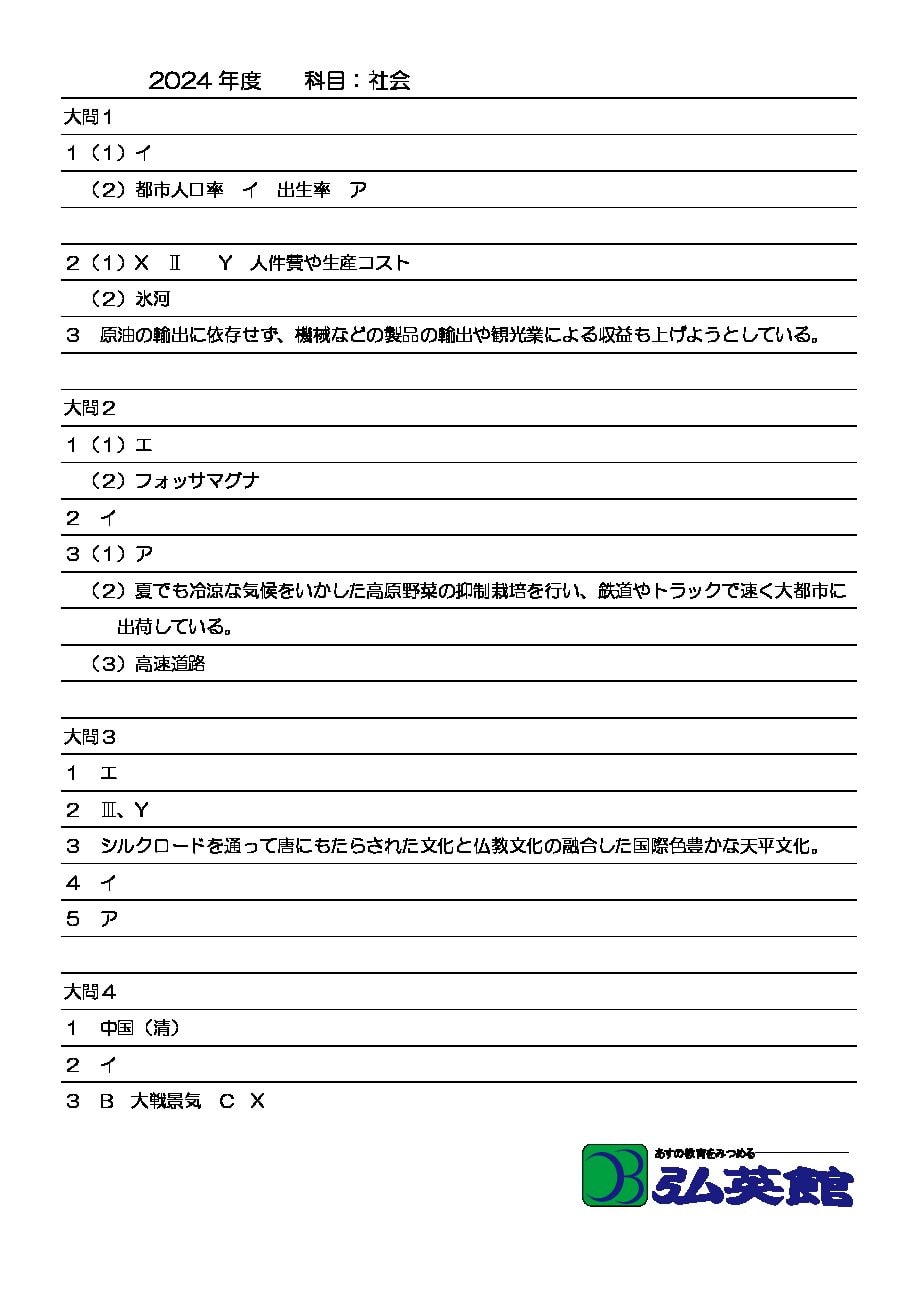 2024年度　科目：社会
大問１
１（１）イ
（２）都市人口率　イ　出生率　ア
２（１）X　Ⅱ　　Y　人件費や生産コスト
（２）氷河
３　原油の輸出に依存せず、機械などの製品の輸出や観光業による収益も上げようとしている。
大問２
１（１）エ
（２）フォッサマグナ
２　イ
３（１）ア
（２）夏でも冷涼な気候をいかした高原野菜の抑制栽培を行い、鉄道やトラックで速く大都市に
出荷している。
（３）高速道路
大問３
１　エ
２　Ⅲ、Y
３　シルクロードを通って唐にもたらされた文化と仏教文化の融合した国際色豊かな天平文化。
４　イ
５　ア
大問４
１　中国（清）
２　イ
３　B　大戦景気　C　X
あすの教育をみつめる
弘英館